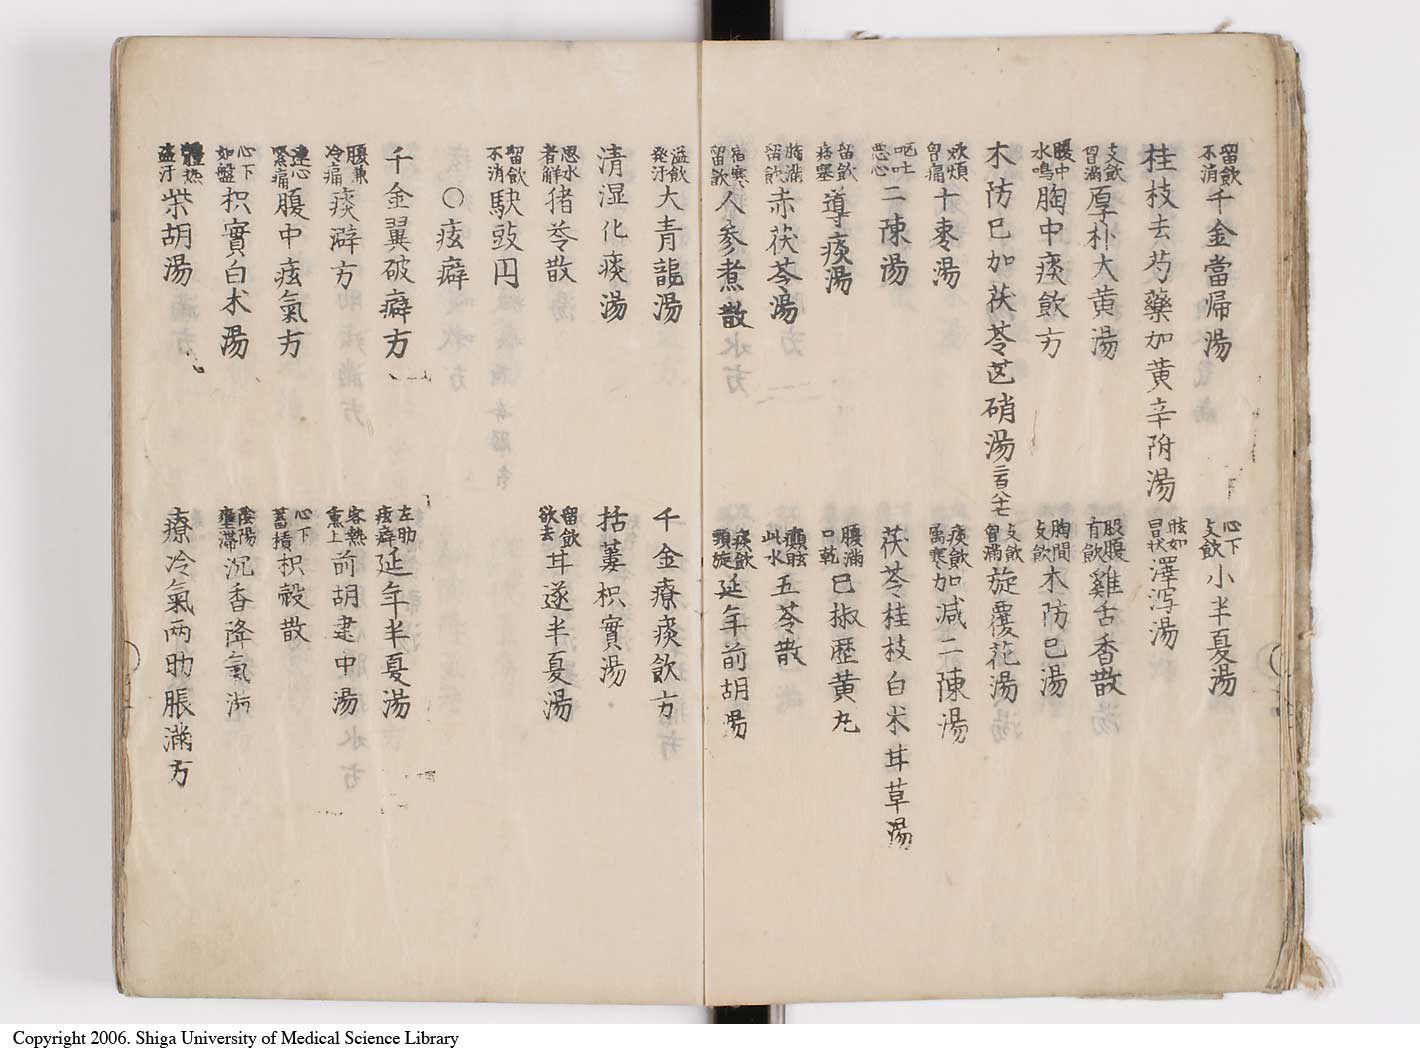 留飲不消 千金當帰湯
心下支飲 小半夏湯
桂枝去芍藥加黃辛附湯
眩如冒状 澤瀉湯
支飲胃満 厚朴大黄湯
股腹有飲 雞舌香散
腹中水鳴 胸中痰飲方
胸間支飲 木防已湯
木防已加茯苓芒硝湯
支飲胃滿 旋覆花湯
欬煩胃痛 十枣湯
痰飲為寒 加減二陳湯
嘔吐悪心 二陳湯
茯苓桂枝白朮甘草湯
留飲痞塞 導痰湯
腹満口乾 已椒歴黄丸
胸満留飲 赤茯苓湯
癲眩此水 五苓散
宿寒留飲 人参煮散
痰飲頭旋 延年前胡湯
溢飲発汗 大青龍湯
千金療痰飲方
清湿化痰湯
括蔞枳實湯
思水者解 猪苓散
留飲欲去 甘遂半夏湯
留飲不消 駃豉円
○痃癖
千金翼破癖方
左肋痃癖 延年半夏湯
腹兼冷痛 痰澼方
客熱熏上 前胡建中湯
連心緊痛 腹中痃氣方
心下蓄積 枳殻散
心下如盤 枳實白朮湯
陰陽壅滞 沉香降氣湯
體熱盗汗 柴胡湯
療冷氣两肋脹滿方
Copyright 2006. Shiga University of Medical Science Library